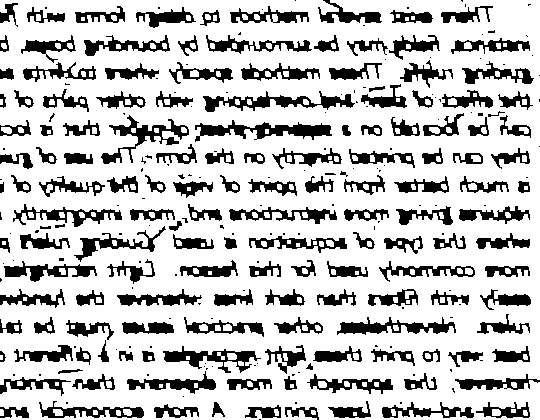 There exist several methods to design forms with
instance, fields may be surrounded by bounding boxes,
guiding rulers. These methods specify where to write
the effect of skew and overlapping with other parts of
can be located on a separate sheet of paper that is
they can be printed directly on the form. The use of
is much better from the point of view of the quality of
requires giving more instructions and, more importantly,
where this type of acquisition is used. Guiding rulers
more commonly used for this reason. Light rectangles
easily with filters than dark lines whenever the
rulers. Nevertheless, other practical issues must be
best way to print these light rectangles is in a different
however, this approach is more expensive than printing
black-and-white laser printer. A more economical